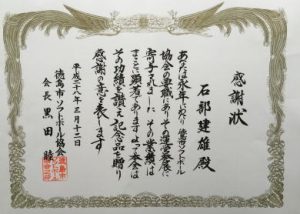 感謝状
石部建雄殿
あなたは永年にわたり徳島市ソフトボール
協会の要職にありその運営発展に
寄与されました その業績は
まことに顕著であります よって本会は
その功績を讃え記念品を贈り
感謝の意を表します
平成二十八年三月十二日
徳島市ソフトボール協会
会長 黒田 睦